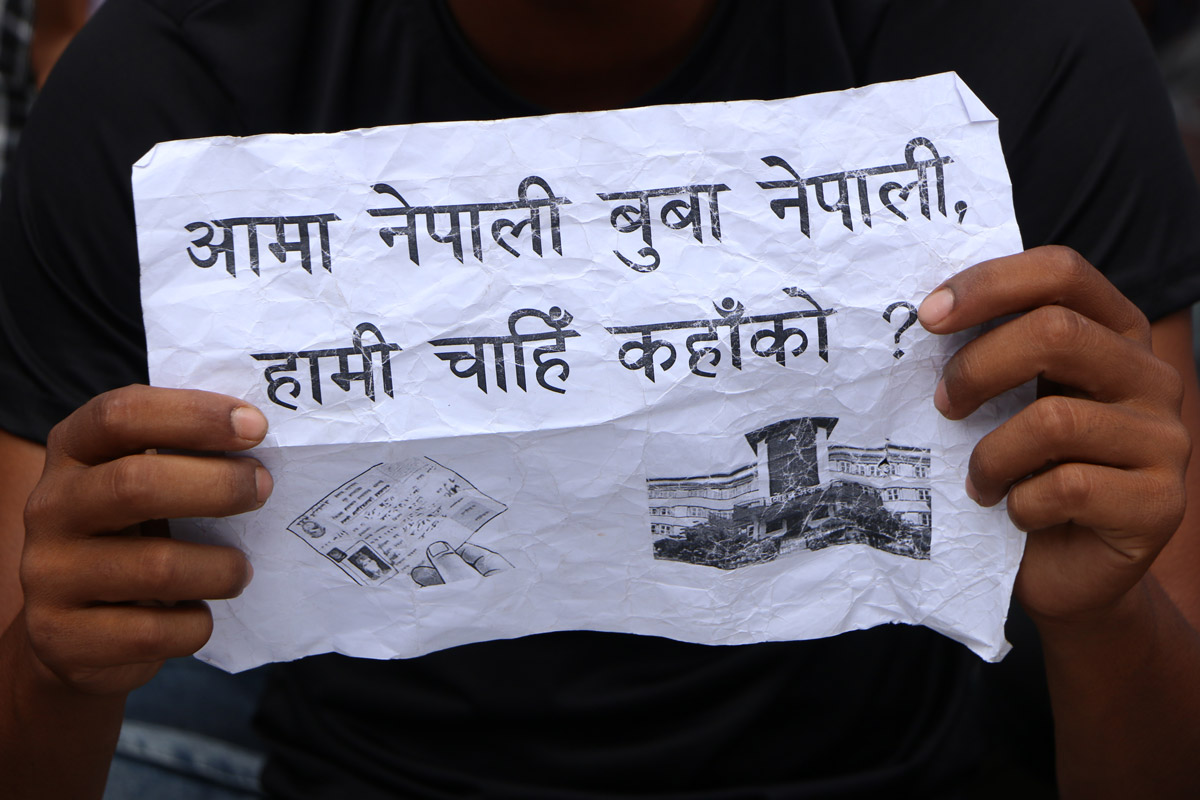 आमा नेपाली बुबा नेपाली,
हामी चाहिँ कहाँको ?